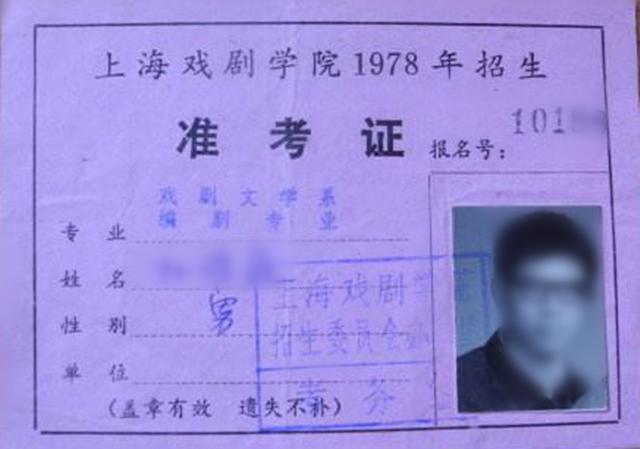 上海戏剧学院1978年招生
准考证
报名号：101
戏剧文学系
编剧专业
专业
姓名
性别 男
单位
（盖章有效 遗失不补）
上海戏剧学
招生委员会
务